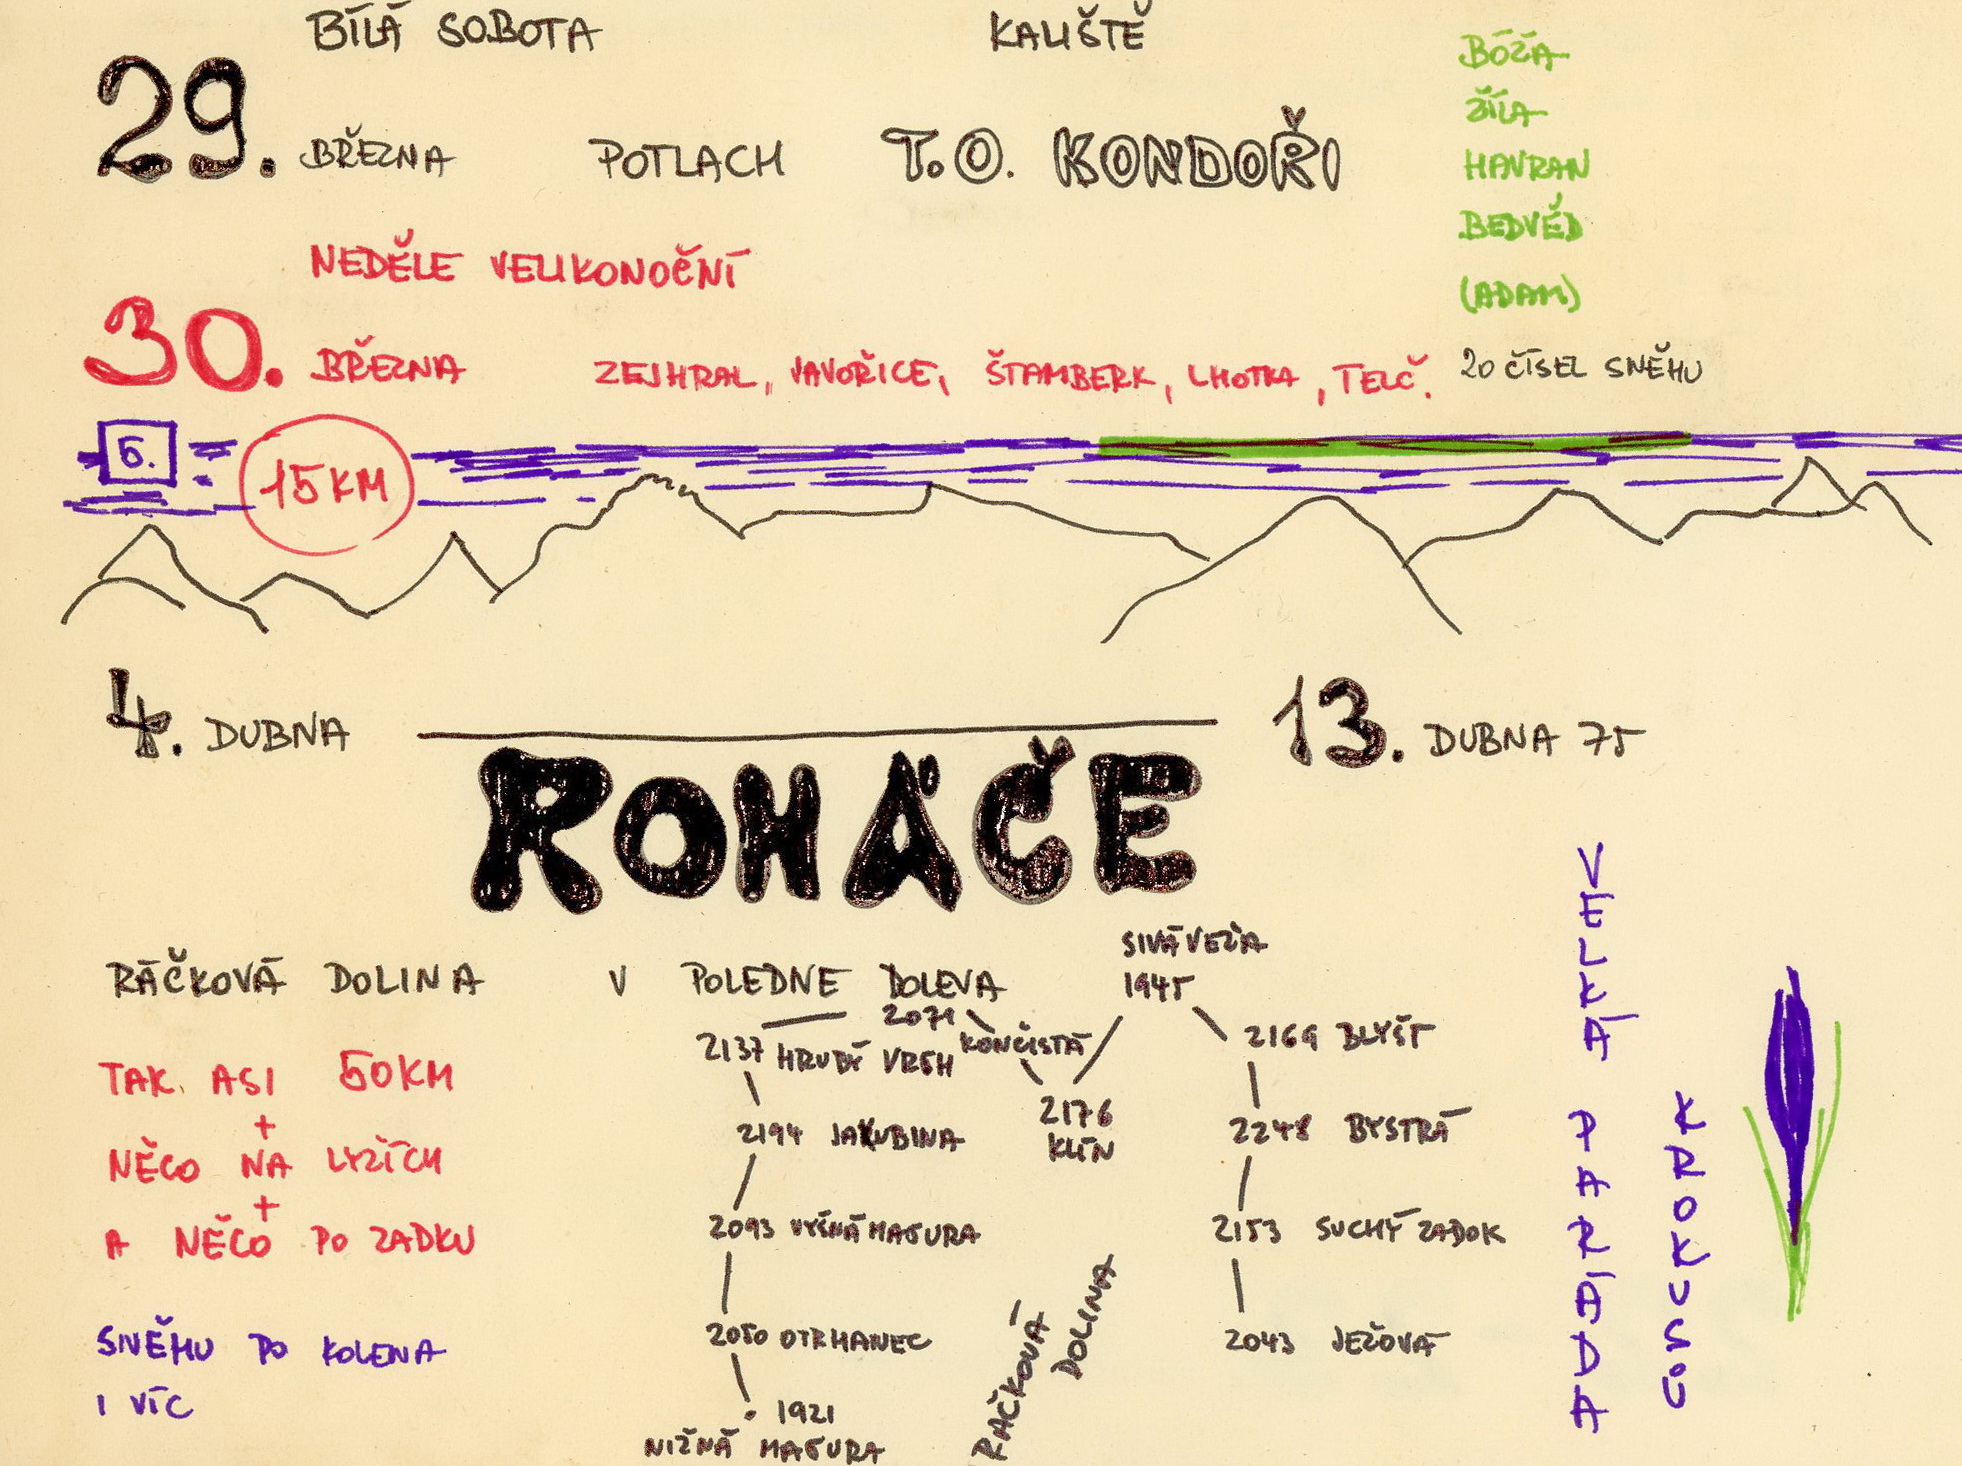 BÍLÁ SOBOTA KALIŠTĚ
29. BŘEZNA POTLACH T.O. KONDOŘI
BÓŽA
ŽÍLA
HAVRAN
BEDVĚD
(ADAM)
NEDĚLE VELIKONOČNÍ
30. BŘEZNA ZEJHRAL, JAVOŘICE, ŠTAMBERK, LHOTKA, TELČ.
20 ČÍSEL SNĚHU
5.
15 KM
4. DUBNA 13. DUBNA 75
ROHÁČE
RÁČKOVÁ DOLINA V POLEDNE DOLEVA
TAK ASI 50KM
+
NĚCO NA LYŽÍCH
+
A NĚCO PO ZADKU
SNĚHU PO KOLENA
I VÍC
SIVÁ VEŽA
1945
2071 KONČISTÁ
2137 HRUBÝ VRCH
2176
KLÍN
2194 JAKUBINA
2093 VYŠNÁ MAGURA
2050 OTRHANEC
1921
NIŽNÁ MAGURA
RÁČKOVÁ
DOLINA
2169 BLYŠŤ
2248 BYSTRÁ
2153 SUCHÝ ZADOK
2043 JEŽOVÁ
VELKÁ PARÁDA
KROKUSŮ